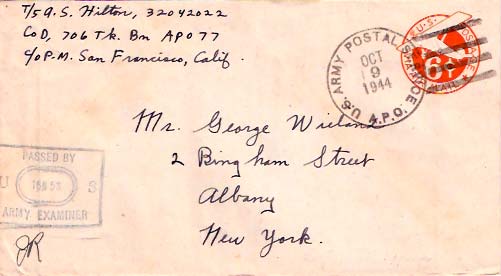 T/5 G. S. Hilton, 32042022
Co D, 706 Tk. Bn APO 77
c/o P.M. San Francisco, Calif.
U.S. ARMY POSTAL SERVICE
OCT
9
1944
A.P.O.
U.S. POSTAGE
6
MAIL
Mr. George Wieland
2 Bingham Street
Albany
New York.
PASSED BY
U S
ARMY EXAMINER
JR